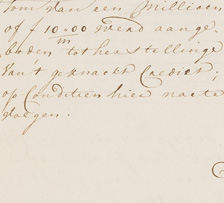 Som van een Millioen
of f 10.00 m Wead aange
boden tot herstellinge
van't geknackt Crediet;
op Conditien hier naete
voegen.